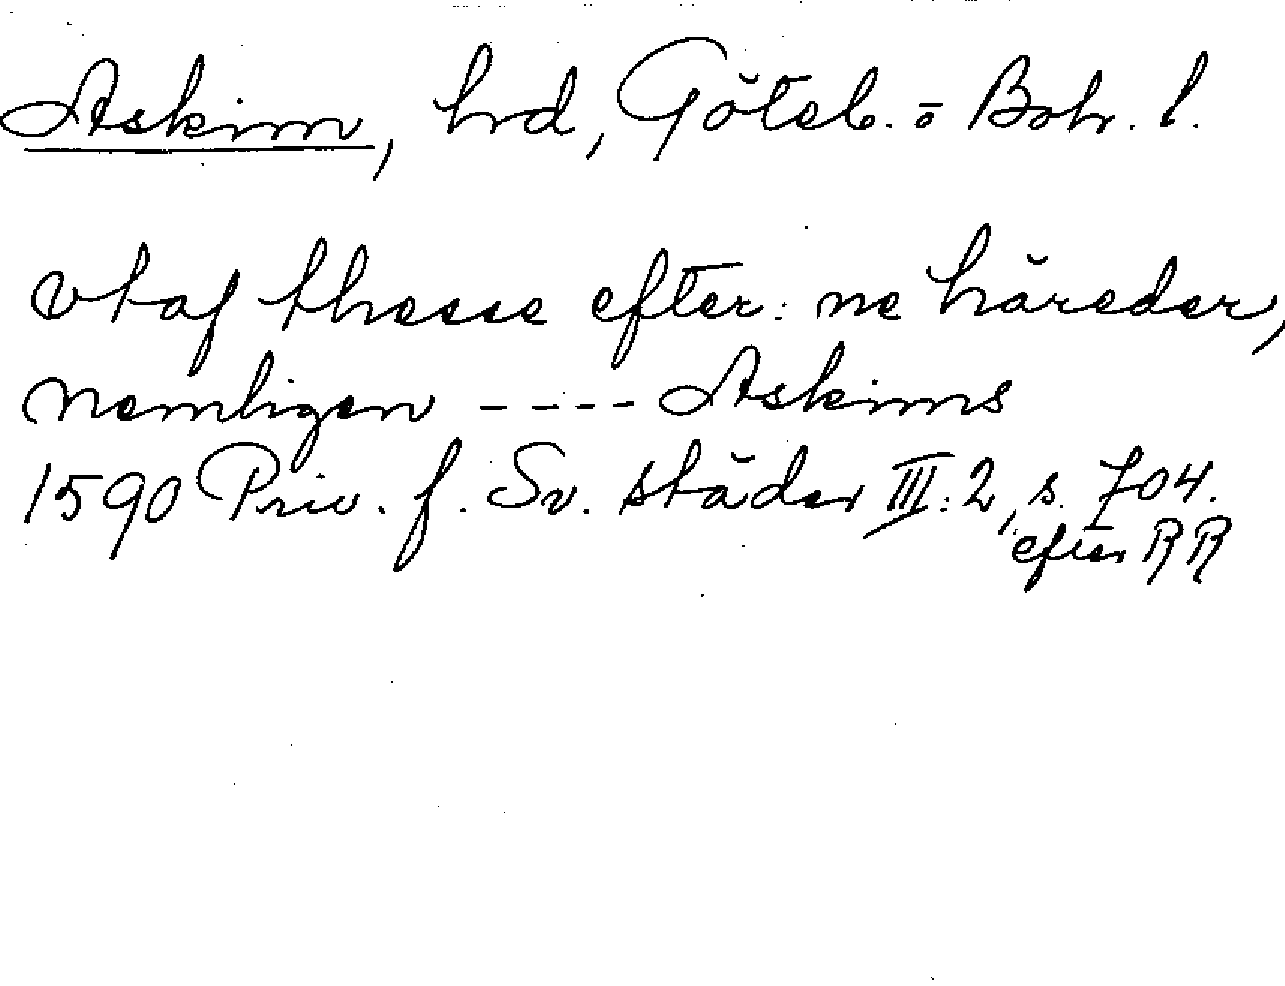 Askim, hrd, Göteb. o Boh. l.
vtaf thesse efter: ne häreder,
Nemligen ---- Askims
1590 Priv. f. Sv. städer III: 2, s. 704.
efter RR